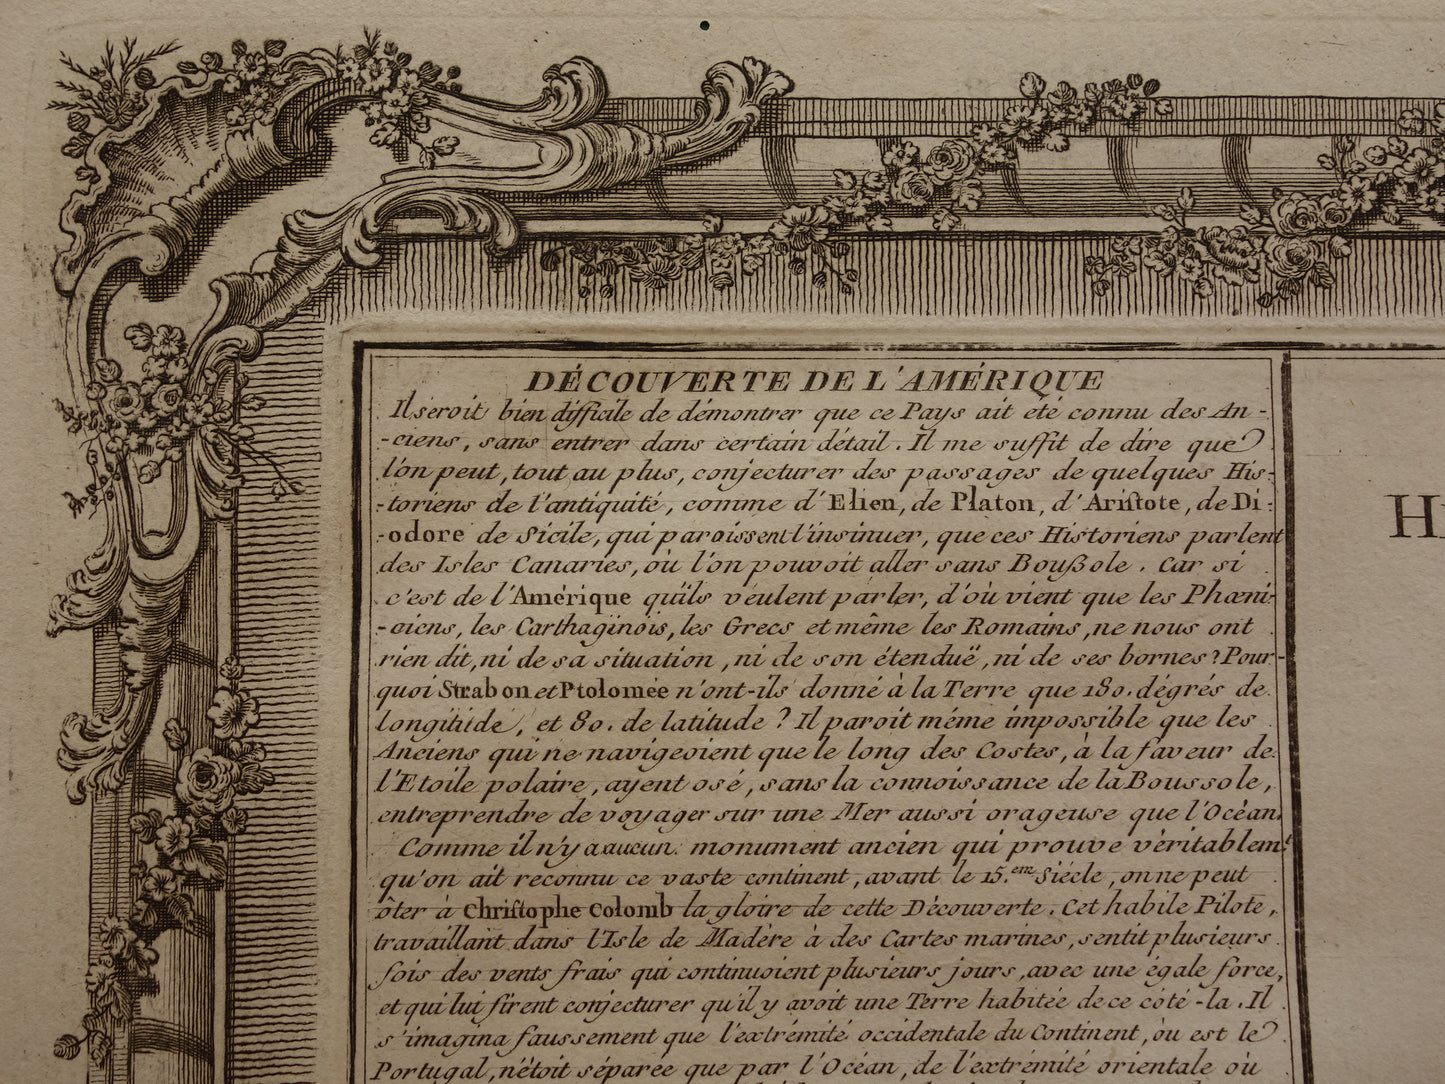 DÉCOUVERTE DE L'AMÉRIQUE
Il seroit bien difficile de démontrer que ce Pays ait été connu des An-
-ciens, sans entrer dans certain détail. Il me suffit de dire que
l'on peut, tout au plus, conjecturer des passages de quelques His-
-toriens de l'antiquité, comme d'Elien, de Platon, d'Aristote, de Di-
-odore de Sicile, qui paroissent l'insinuer, que ces Historiens parlent
des Isles Canaries, où l'on pouvoit aller sans Boußole. Car si
c'est de l'Amérique qu'ils veulent parler, d'où vient que les Phœni-
-ciens, les Carthaginois, les Grecs et même les Romains, ne nous ont
rien dit, ni de sa situation, ni de son étenduë, ni de ses bornes? Pour-
quoi Strabon et Ptolomée n'ont-ils donné à la Terre que 180. dégrés de
longitude, et 80. de latitude? Il paroit même impossible que les
Anciens qui ne navigeoient que le long des Costes, à la faveur de
l'Etoile polaire, ayent osé, sans la connoissance de la Boussole,
entreprendre de voyager sur une Mer aussi orageuse que l'Océan.
Comme il n'y a aucun monument ancien qui prouve véritablem.t
qu'on ait reconnu ce vaste continent, avant le 15.em Siécle, on ne peut
ôter à Christophe Colomb la gloire de cette Découverte. Cet habile Pilote,
travaillant dans l'Isle de Madère à des Cartes marines, sentit plusieurs
fois des vents frais qui continuoient plusieurs jours, avec une égale force,
et qui lui firent conjecturer qu'il y avoit une Terre habitée de ce côté-la. Il
s'imagina faussement que l'extrémité occidentale du Continent, où est le
Portugal, n'étoit séparée que par l'Océan, de l'extrémité orientale où